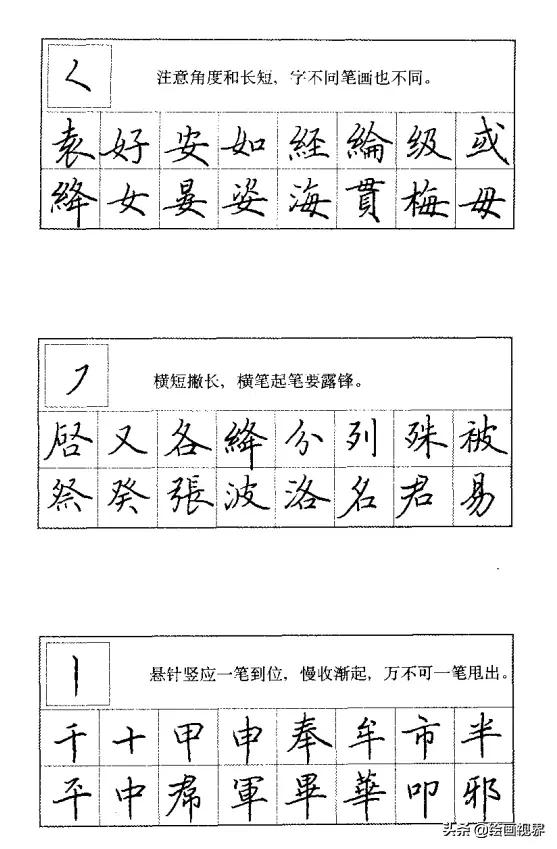 注意角度和长短，字不同笔画也不同。
袁好安如経綸级或
絳女晏姿海貫梅毋
横短撇长，横笔起笔要露锋。
啓又各絳分列殊被
祭癸張波洛名君易
悬针竖应一笔到位，慢收渐起，万不可一笔甩出。
千十甲申奉牟市半
平中帬軍畢華叩邪
头条 @绘画视界